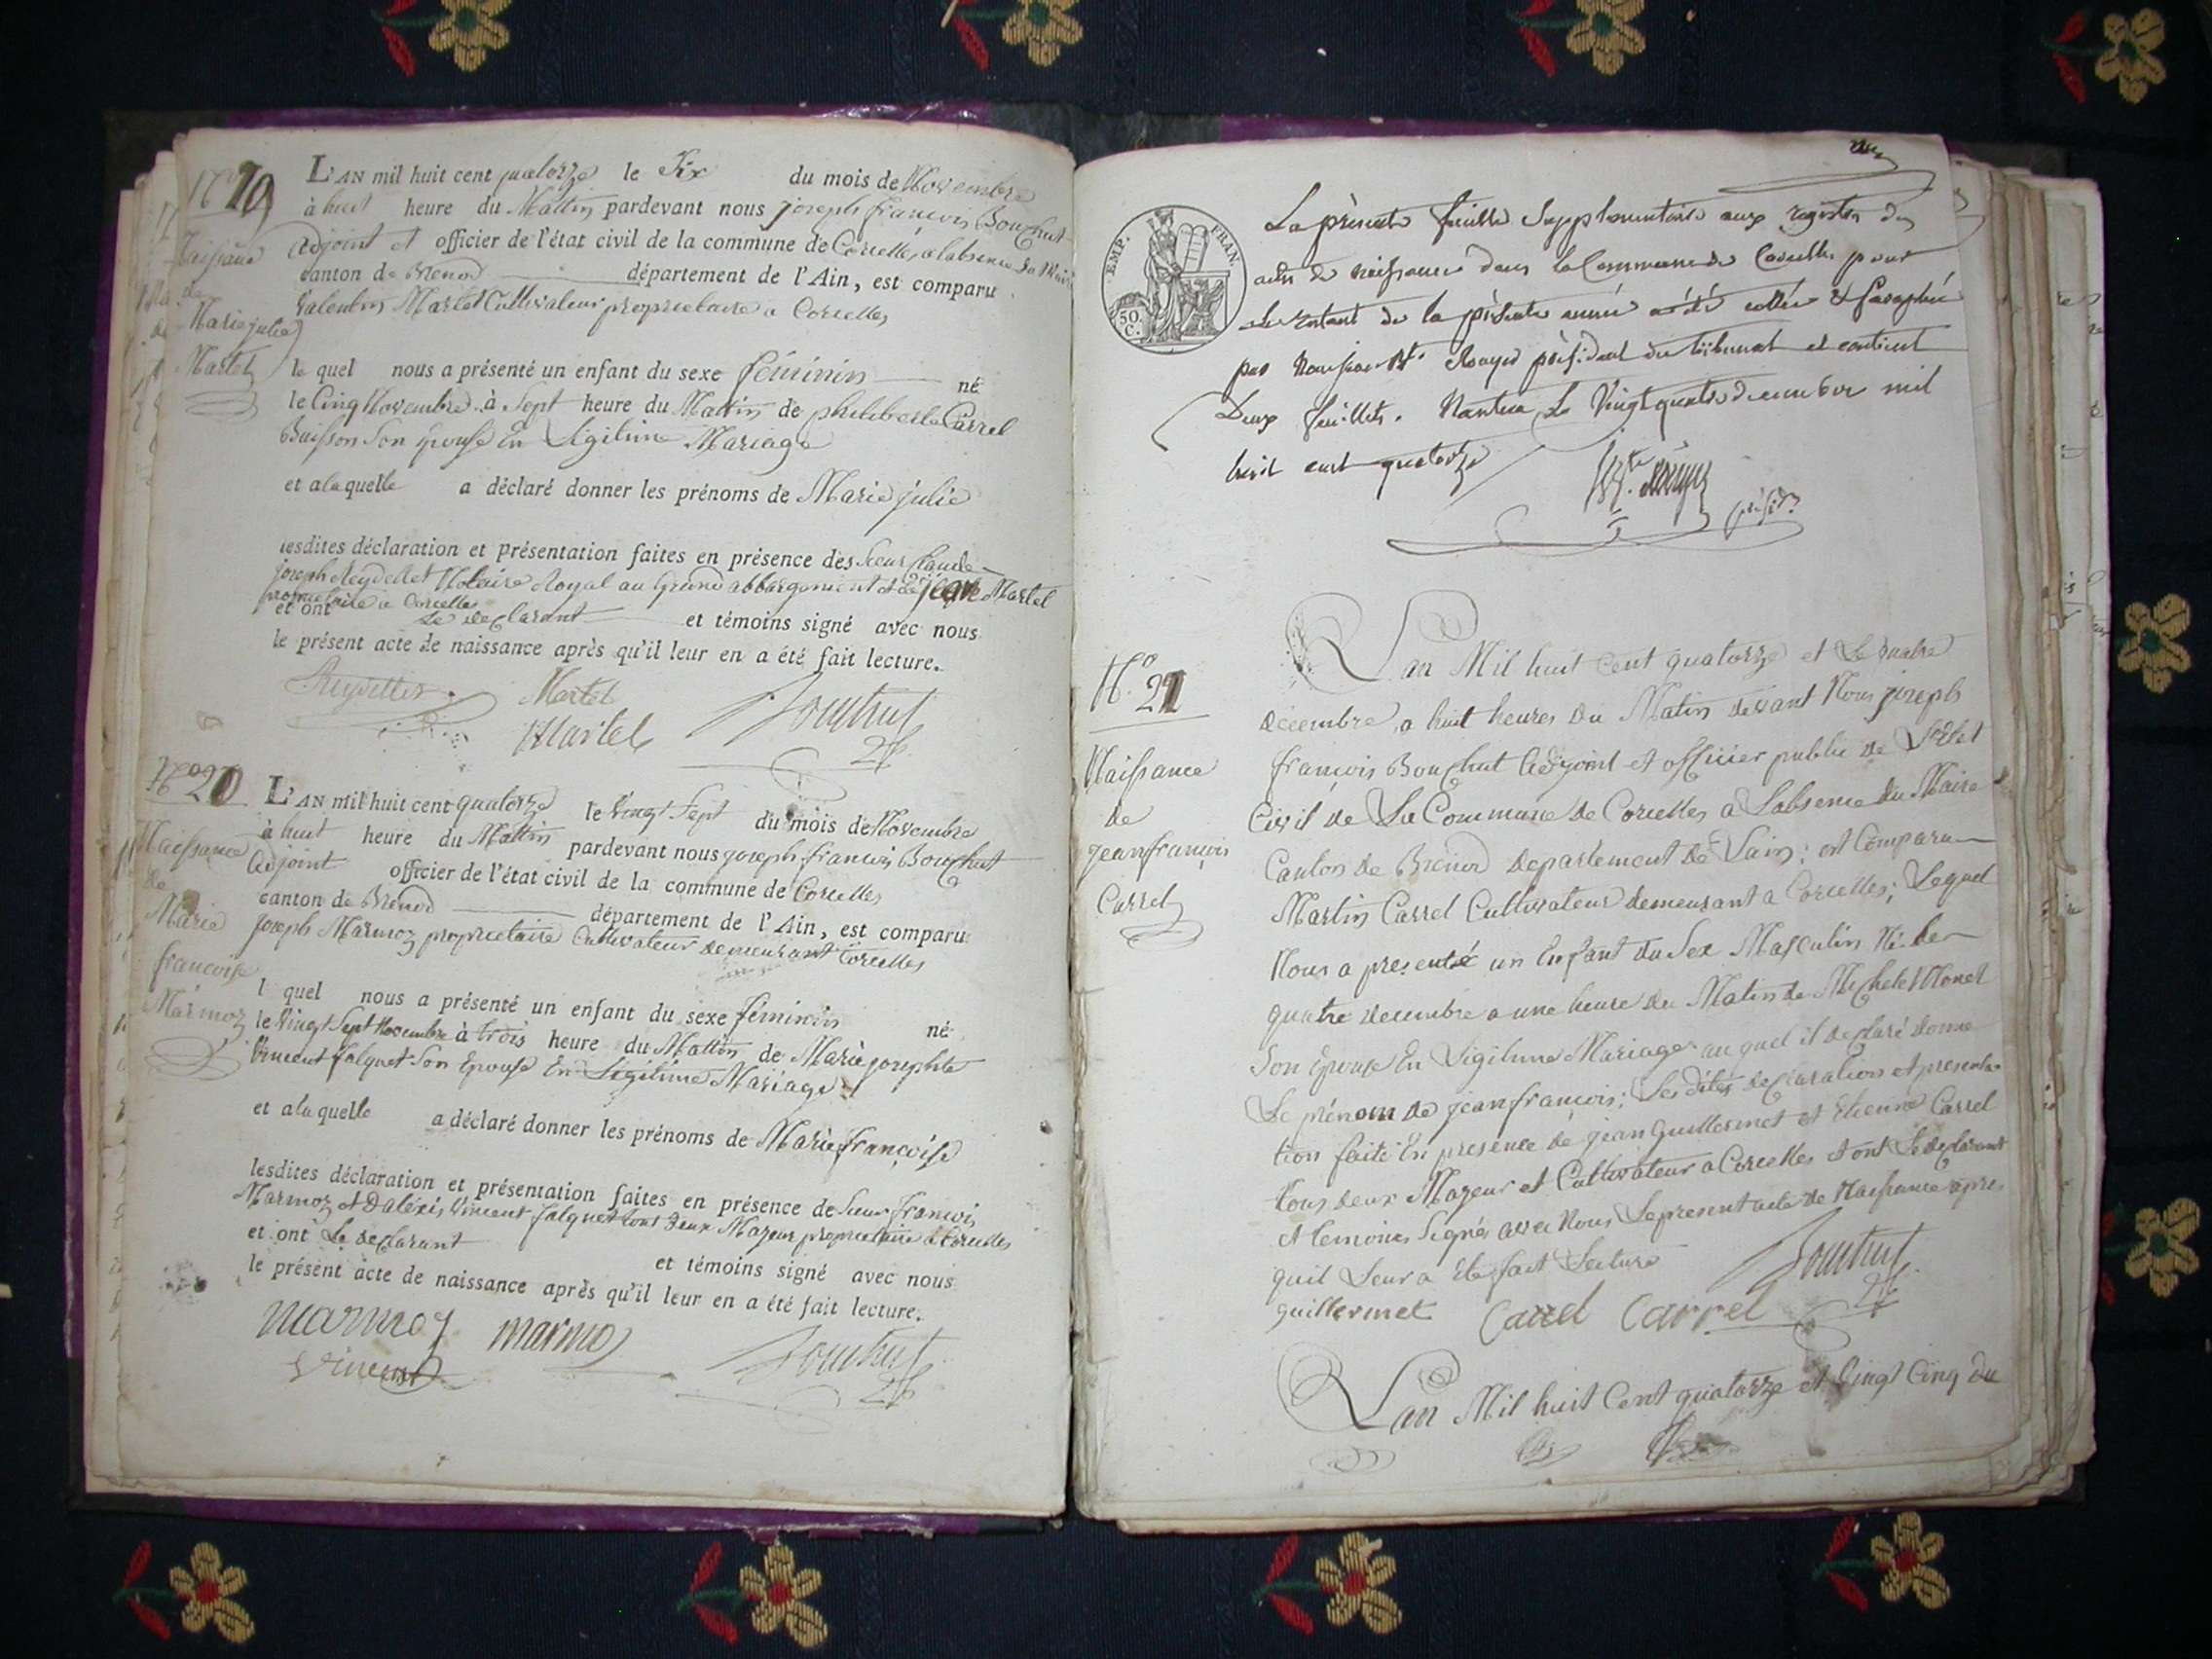 N° 19
Naissance
de
Marie julie
Martel
L'AN mil huit cent quatorze le Six du mois de Novembre
à huit heure du Mattin pardevant nous joseph françois Bouchut
adjoint et officier de l'état civil de la commune de Corcelles a labsence du Maire
canton de Brenod département de l'Ain, est comparu
Valentin Martel Cultivateur proprietaire a Corcelles
le quel nous a présenté un enfant du sexe féminin né
le Cinq Novembre à Sept heure du Mattin de philiberte Carrel
Buisson Son Epouse En Ligitime Mariage
et alaquelle a déclaré donner les prénoms de Marie julie
lesdites déclaration et présentation faites en présence des Sieur Claude
joseph Reydellet Notaire Royal au Grand abbergement et de Martel
proprietaire a Corcelles
et ont Le declarant et témoins signé avec nous
le présent acte de naissance après qu'il leur en a été fait lecture.
Reydellet Martel
Martel Bouchut
N° 20
Naissance
de
Marie
françoise
Marmoz
L'AN mil huit cent quatorze le Vingt Sept du mois de Novembre
à huit heure du Mattin pardevant nous joseph francois Bouchut
adjoint officier de l'état civil de la commune de Corcelles
canton de Brenod département de l'Ain, est comparu
joseph Marmoz proprietaire Cultivateur demeurant Corcelles
l quel nous a présenté un enfant du sexe féminin né
le Vingt Sept Novembre à trois heure du Mattin de Marie josephte
Vincent falquet Son Epouse En Ligitime Mariage
et alaquelle a déclaré donner les prénoms de Marie françoise
lesdites déclaration et présentation faites en présence de Sieur francois
Marmoz et Dalexis Vincent falquet tout deux Majeur proprietaire a Corcelles
et ont Le declarant et témoins signé avec nous
le présent acte de naissance après qu'il leur en a été fait lecture.
marmoz marmoz
Vincent Bouchut
EMP. FRAN.
50 C.
La présente feuille Supplementaire aux registres des
actes de naissance dans la Commune de Corcelles pour
le restant de la présente année a été cottée & Paraphée
par Rouyer président du tribunal et contient
Deux feuillets. Nantua Le Vingt quatre decembre mil
huit cent quatorze
Rouyer
présid.
N° 21
Naissance
de
jean françois
Carrel
Lan Mil huit Cent quatorze et Le quatre
decembre a huit heures du Matin devant Nous joseph
françois Bouchut adjoint et officier public de L'Etat
Civil de La Commune de Corcelles a Labsence du Maire
Canton de Brenod departement de Lain; est Comparu
Martin Carrel Cultivateur demeurant a Corcelles; Lequel
Nous a presenté un Enfant du Sex Masculin Né le
quatre decembre a une heure du Matin de Michele Monet
Son Epouse En Ligitime Mariage auquel il declaré donne
Le prénom de jean françois; Les dites declaration et presenta-
tion faite En presence de jean Guillermet et Etienne Carrel
tous deux Majeur et Cultivateur a Corcelles et ont Le declarant
et temoins Signé avec Nous Le present acte de Naissance apres
quil Leur a Ete fait Lecture
guillermet Carrel Carrel Bouchut
Lan Mil huit Cent quatorze et Vingt Cinq du